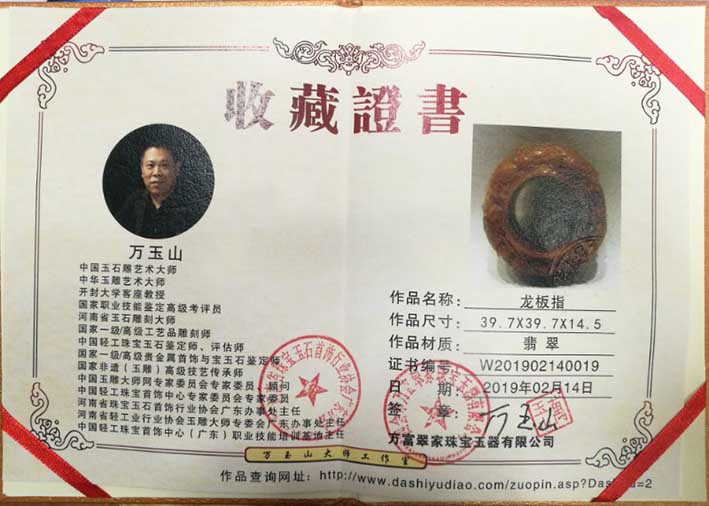 收藏證書
万玉山
中国玉石雕艺术大师
中华玉雕艺术大师
开封大学客座教授
国家职业技能鉴定高级考评员
河南省玉石雕刻大师
国家一级/高级工艺品雕刻师
中国轻工珠宝玉石鉴定师、评估师
国家一级/高级贵金属首饰与宝玉石鉴定师
国家非遗（玉雕）高级技艺传承师
中国玉雕大师网专家委员会专家委员、顾问
中国轻工珠宝首饰中心专家委员会专家委员
河南省珠宝玉石首饰行业协会广东办事处主任
河南省轻工业行业协会玉雕大师专委会广东办事处主任
中国轻工珠宝首饰中心（广东）职业技能培训基地主任
作品名称： 龙板指
作品尺寸： 39.7X39.7X14.5
作品材质： 翡翠
证书编号： W201902140019
日 期： 2019年02月14日
签 章： 万玉山
万富翠家珠宝玉器有限公司
万玉山大师工作室
作品查询网址：http://www.dashiyudiao.com/zuopin.asp?Das
=2